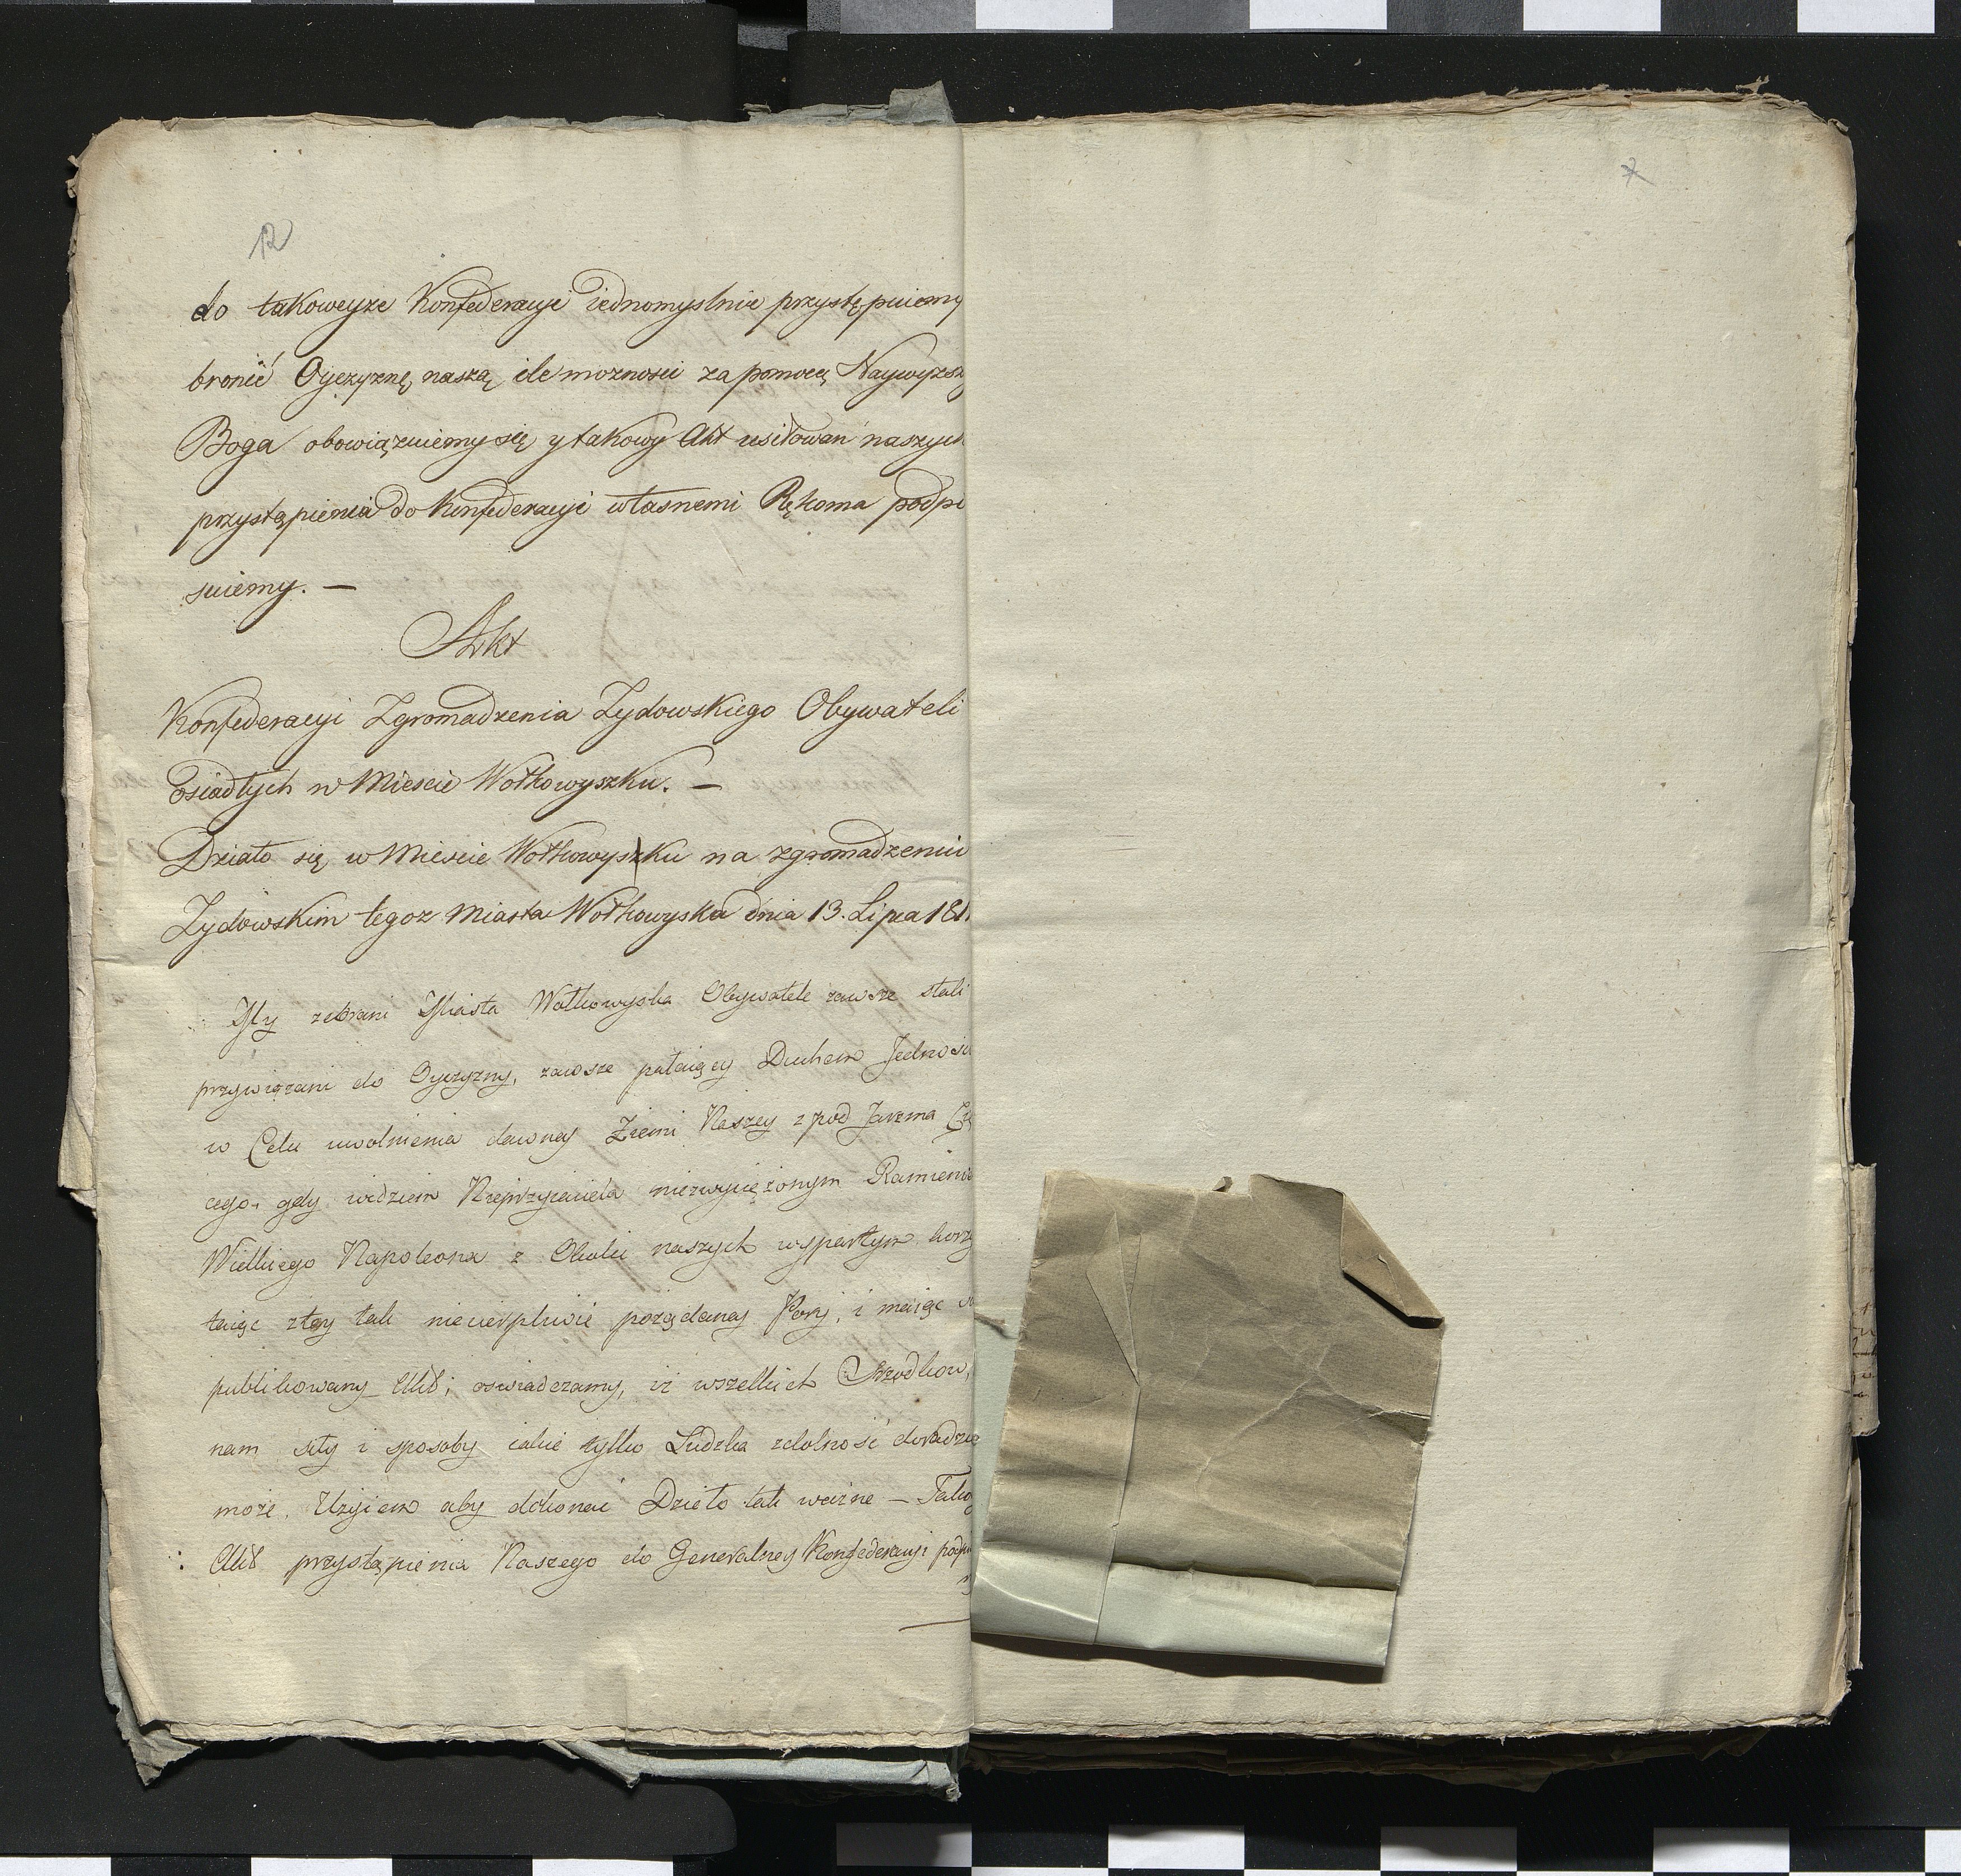 12
7
do takoweyze Konfederacyi iednomyslnie przystępuiemy
bronić Oyczyznę naszą ile moznosci za pomocą Naywyzsz
Boga obowiązuiemy się y takowy Akt usiłowań naszych
przystąpienia do Konfederacyi własnemi Rękoma podpi
suiemy. —
Akt
Konfederacyi Zgromadzenia Zydowskiego Obywateli
Osiadłych w Miescie Wołkowyszku. —
Działo się w Miescie Wołkowyszku na zgromadzeniu
Zydowskim tegoz Miasta Wołkowyska dnia 13. Lipca 181
My zebrani Miasta Wołkowyska Obywatele zawsze stali
przywiązani do Oyczyzny, zawsze pałaiący Duchem Jednosci
w Celu uwolnienia dawney Ziemi Naszey z pod Jarzma
cego. gdy widziem Nieprzyiaciela niezwyciężonym Ramieni
Wielkiego Napoleona z Okolic naszych wypartym korzy
taiąc z tey tak niecierpliwie pożądaney Pory, i maiąc
publikowany Akt; oswiadczamy, iż wszelkich Srzodkow,
nam siły i sposoby iakie tylko Ludzka zdolność doradzic
może. Użyiem aby dokonać Dzieło tak ważne — Tako
Akt przystąpienia Naszego do Generalney Konfederacyi podpi